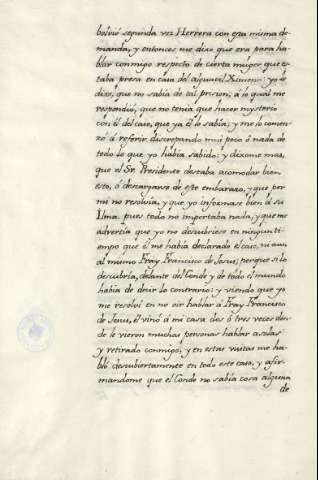 bolvió segunda vez Herrera con esta misma de-
manda, y entonces me dixo que era para ha-
blar conmigo respecto de cierta muger, que es-
taba presa en casa del alguacil Ximeno: yo le
dixe, que no sabía de tal prision; á lo qual me
respondió, que no tenia que hacer mysterio
con él del caso, que ya él lo sabía; y me lo comen-
zó á referir, discrepando mui poco ó nada de
todo lo que yo había sabido: y dixome mas,
que el Sr. Presidente deseaba acomodar bien
esto, ó descargarse de este embarazo, y que por
mi no resolvia, y que yo informase bien á su
Ilma. pues todo no importaba nada, y que me
advertia que yo no descubriese en ningun ti-
empo que él me había declarado el caso, ni aun
al mismo Fray Francisco de Jesus, porque si lo
descubría, delante del Conde y de todo el mundo
había de decir lo contrario: y viendo que yo
me resolví en no oir hablar á Fray Francisco
de Jesus, él vinó á mi casa dos ó tres veces don-
de le vieron muchas personas hablar asolas
y retirado conmigo, y en estas visitas me ha-
bló descubiertamente en todo este caso, y afir-
mandome que el Conde no sabía cosa alguna
de